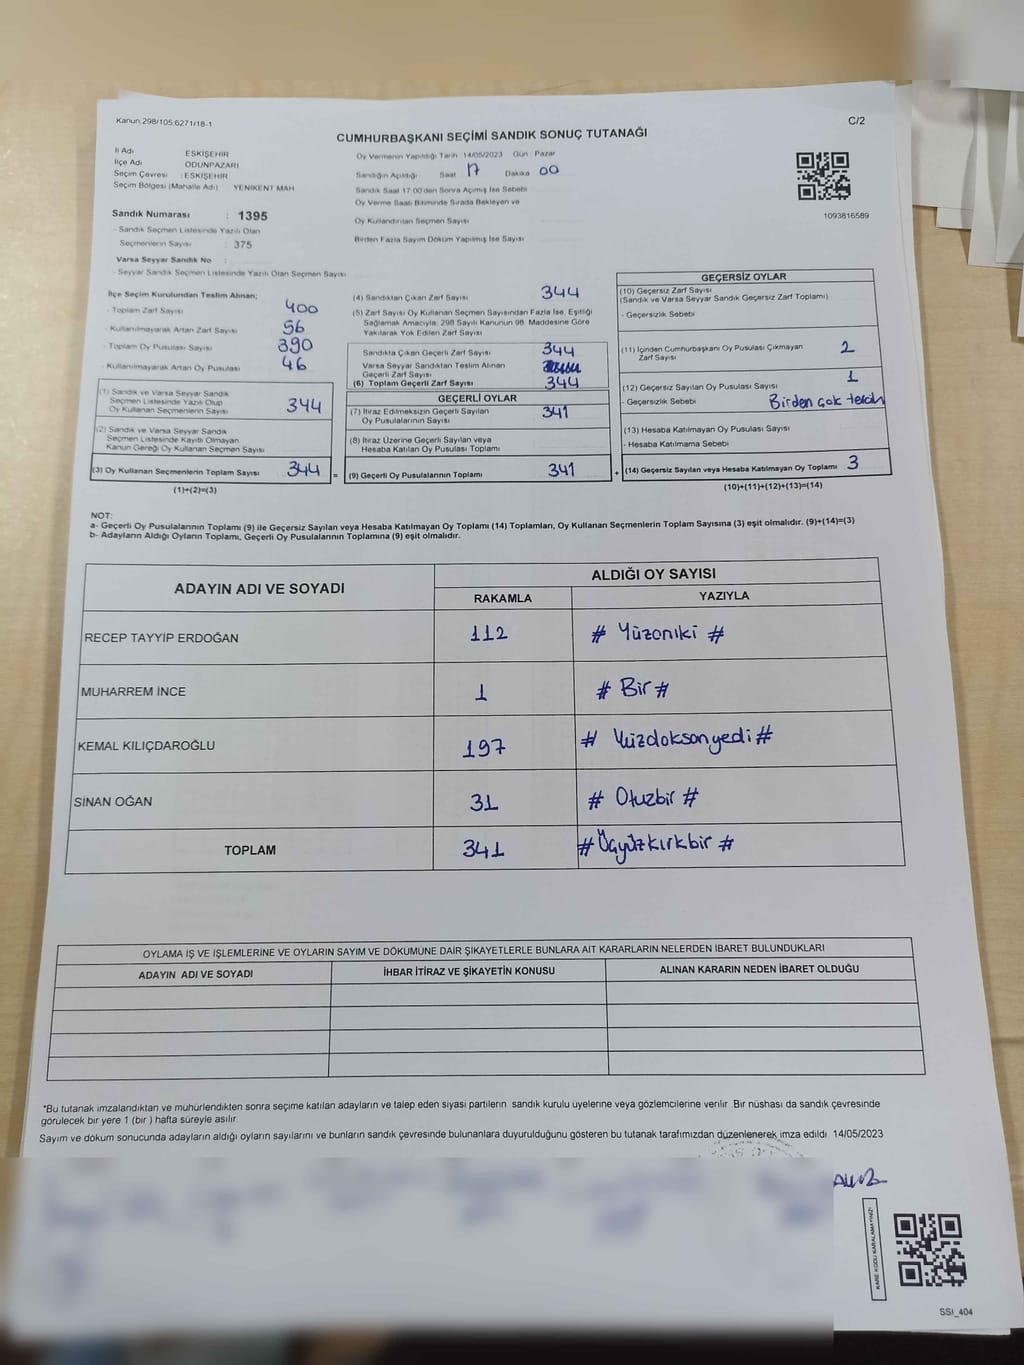 Kanun:298/105.6271/18-1
C/2
CUMHURBAŞKANI SEÇİMİ SANDIK SONUÇ TUTANAĞI
İl Adı ESKİŞEHİR
İlçe Adı ODUNPAZARI
Seçim Çevresi : ESKİŞEHİR
Seçim Bölgesi (Mahalle Adı) YENİKENT MAH
Oy Vermenin Yapıldığı Tarih 14/05/2023 Gün Pazar
Sandığın Açıldığı Saat 17 Dakika 00
Sandık Saat 17:00'den Sonra Açımış İse Sebebi
Oy Verme Saati Bitiminde Sırada Bekleyen ve
Oy Kullandırılan Seçmen Sayısı
Birden Fazla Sayım Döküm Yapılmış İse Sayısı
1093816589
Sandık Numarası : 1395
- Sandık Seçmen Listesinde Yazılı Olan
Seçmenlerin Sayısı : 375
Varsa Seyyar Sandık No :
- Seyyar Sandık Seçmen Listesinde Yazılı Olan Seçmen Sayısı
İlçe Seçim Kurulundan Teslim Alınan;
- Toplam Zarf Sayısı 400
- Kullanılmayarak Artan Zarf Sayısı 56
- Toplam Oy Pusulası Sayısı 390
- Kullanılmayarak Artan Oy Pusulası 46
(1) Sandık ve Varsa Seyyar Sandık
Seçmen Listesinde Yazılı Olup
Oy Kullanan Seçmenlerin Sayısı 344
(2) Sandık ve Varsa Seyyar Sandık
Seçmen Listesinde Kayıtlı Olmayan
Kanun Gereği Oy Kullanan Seçmen Sayısı
(3) Oy Kullanan Seçmenlerin Toplam Sayısı 344 =
(1)+(2)=(3)
(4) Sandıktan Çıkan Zarf Sayısı 344
(5) Zarf Sayısı Oy Kullanan Seçmen Sayısından Fazla İse, Eşitliği
Sağlamak Amacıyla, 298 Sayılı Kanunun 98. Maddesine Göre
Yakılarak Yok Edilen Zarf Sayısı
Sandıkta Çıkan Geçerli Zarf Sayısı 344
Varsa Seyyar Sandıktan Teslim Alınan
Geçerli Zarf Sayısı
(6) Toplam Geçerli Zarf Sayısı 344
GEÇERLİ OYLAR
(7) İtiraz Edilmeksizin Geçerli Sayılan
Oy Pusulalarının Sayısı 341
(8) İtiraz Üzerine Geçerli Sayılan veya
Hesaba Katılan Oy Pusulası Toplamı
(9) Geçerli Oy Pusulalarının Toplamı 341 +
GEÇERSİZ OYLAR
(10) Geçersiz Zarf Sayısı
(Sandık ve Varsa Seyyar Sandık Geçersiz Zarf Toplamı)
- Geçersizlik Sebebi
(11) İçinden Cumhurbaşkanı Oy Pusulası Çıkmayan
Zarf Sayısı 2
(12) Geçersiz Sayılan Oy Pusulası Sayısı 1
- Geçersizlik Sebebi Birden çok tercih
(13) Hesaba Katılmayan Oy Pusulası Sayısı
- Hesaba Katılmama Sebebi
(14) Geçersiz Sayılan veya Hesaba Katılmayan Oy Toplamı 3
(10)+(11)+(12)+(13)=(14)
NOT:
a- Geçerli Oy Pusulalarının Toplamı (9) ile Geçersiz Sayılan veya Hesaba Katılmayan Oy Toplamı (14) Toplamları, Oy Kullanan Seçmenlerin Toplam Sayısına (3) eşit olmalıdır. (9)+(14)=(3)
b- Adayların Aldığı Oyların Toplamı, Geçerli Oy Pusulalarının Toplamına (9) eşit olmalıdır.
ADAYIN ADI VE SOYADI
ALDIĞI OY SAYISI
RAKAMLA YAZIYLA
RECEP TAYYİP ERDOĞAN 112 # Yüzoniki #
MUHARREM İNCE 1 # Bir #
KEMAL KILIÇDAROĞLU 197 # Yüzdoksanyedi #
SİNAN OĞAN 31 # Otuzbir #
TOPLAM 341 # Üçyüzkırkbir #
OYLAMA İŞ VE İŞLEMLERİNE VE OYLARIN SAYIM VE DÖKÜMÜNE DAİR ŞİKAYETLERLE BUNLARA AİT KARARLARIN NELERDEN İBARET BULUNDUKLARI
ADAYIN ADI VE SOYADI İHBAR İTİRAZ VE ŞİKAYETİN KONUSU ALINAN KARARIN NEDEN İBARET OLDUĞU
*Bu tutanak imzalandıktan ve mühürlendikten sonra seçime katılan adayların ve talep eden siyasi partilerin sandık kurulu üyelerine veya gözlemcilerine verilir. Bir nüshası da sandık çevresinde
görülecek bir yere 1 (bir ) hafta süreyle asılır.
Sayım ve döküm sonucunda adayların aldığı oyların sayılarını ve bunların sandık çevresinde bulunanlara duyurulduğunu gösteren bu tutanak tarafımızdan düzenlenerek imza edildi. 14/05/2023
KARE KODU KARALAMAYINIZ!
SSI_404